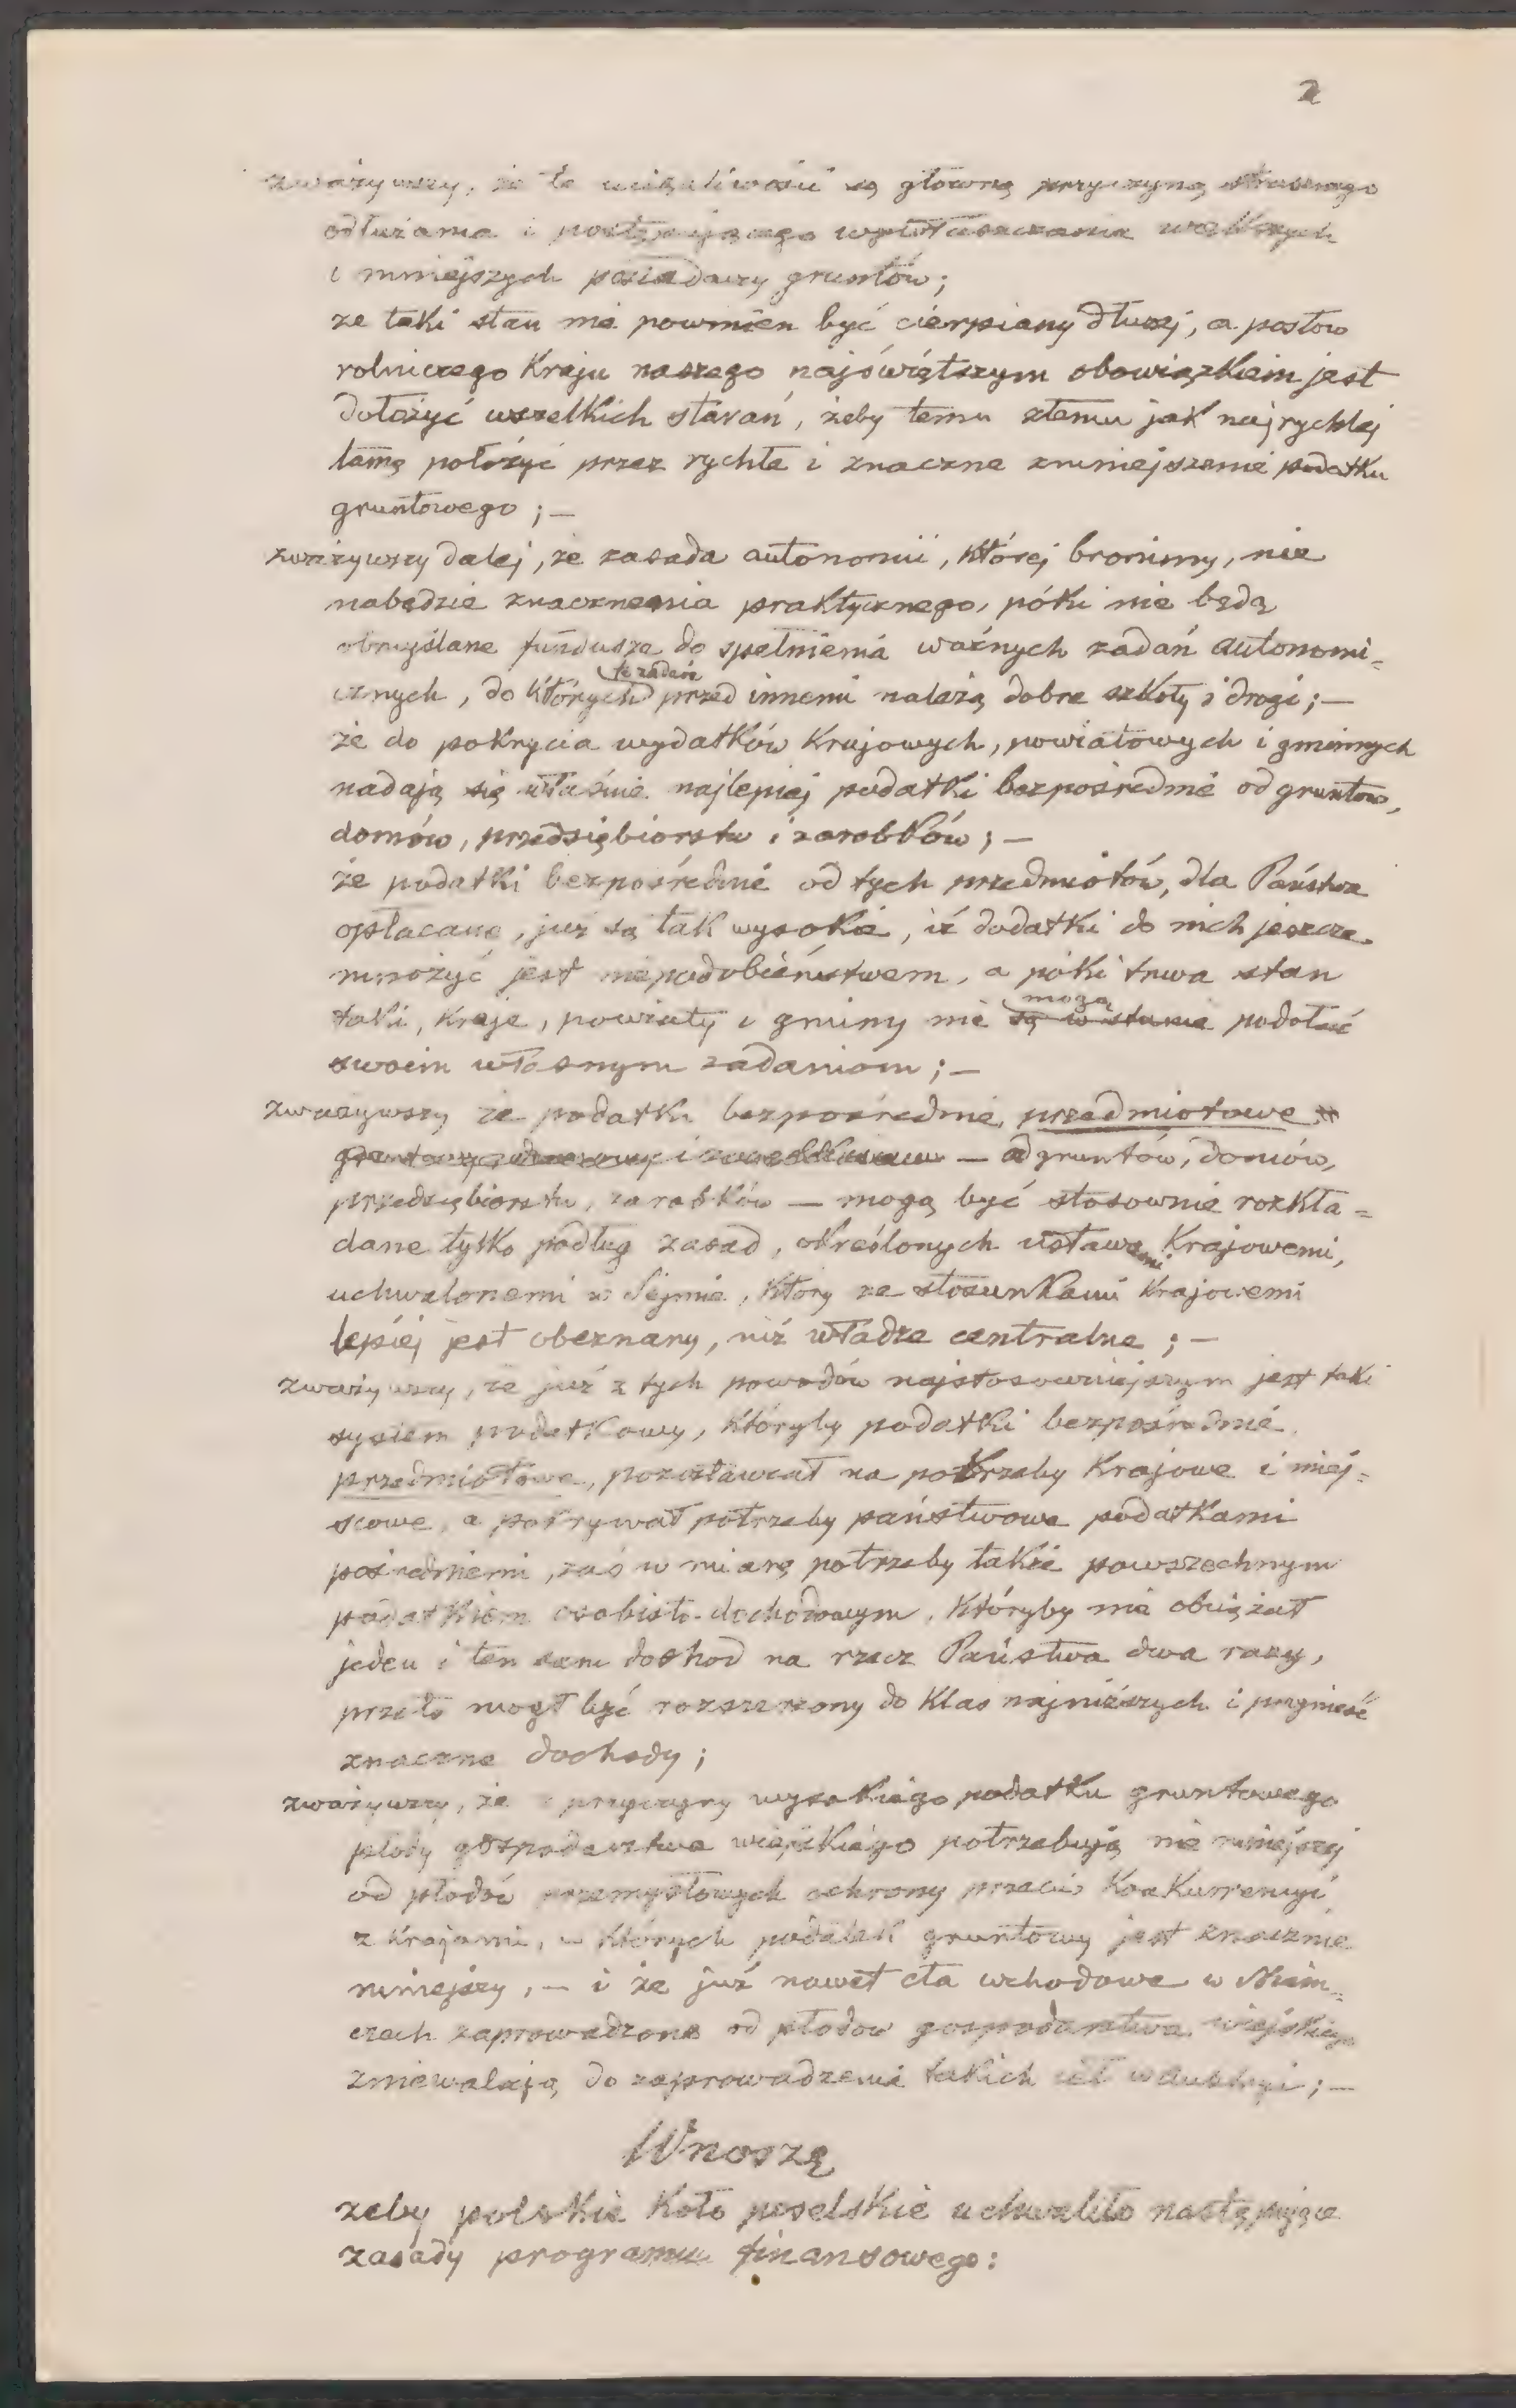 2
zważywszy, że te uciążliwości są główną przyczyną strasznego
odłużania i postępującego wywłaszczania większych
i mniejszych posiadaczy gruntów;
że taki stan nie powinien być cierpiany dłużej, a posłów
rolniczego Kraju naszego najświętszym obowiązkiem jest
dołożyć wszelkich starań, żeby temu złemu jak najrychlej
tamę położyć przez rychłe i znaczne zmniejszenie podatku
gruntowego; —
zważywszy dalej, że zasada autonomii, której bronimy, nie
nabędzie znaczenia praktycznego, póki nie będą
obmyślane fundusze do spełnienia ważnych zadań autonomi=
cznych, do których przed innemi należą dobre szkoły i drogi; —
że do pokrycia wydatków Krajowych, powiatowych i gminnych
nadają się właśnie najlepiej podatki bezpośrednie od gruntów,
domów, przedsiębiorstw i zarobków; —
że podatki bezpośrednie od tych przedmiotów, dla Państwa
opłacane, już są tak wysokie, iż dodatki do nich jeszcze
mnożyć jest niepodobieństwem, a póki trwa stan
taki, Kraje, powiaty i gminy nie mogą są w stanie podołać
swoim własnym zadaniom; —
zważywszy że podatki bezpośrednie, przedmiotowe
— od gruntów, domów,
przedsiębiorstw, zarobków — mogą być stosownie rozkła=
dane tylko podług zasad, określonych ustawami Krajowemi,
uchwalonemi w Sejmie, który ze stosunkami Krajowemi
lepiej jest obeznany, niż władze centralne; —
zważywszy, że już z tych powodów najstosowniejszym jest taki
system podatkowy, któryby podatki bezpośrednie,
przedmiotowe, pozostawiał na potrzeby Krajowe i miej=
scowe, a pokrywał potrzeby państwowe podatkami
pośredniemi, zaś w miarę potrzeby także powszechnym
podatkiem osobisto-dochodowym, któryby nie obciążał
jeden i ten sam dochod na rzecz Państwa dwa razy,
przeto mogł być rozszerzony do Klas najniższych i przynieść
znaczne dochody;
zważywszy, że z przyczyny wysokiego podatku gruntowego
płody gospodarstwa wiejskiego potrzebują nie mniejszej
od płodów przemysłowych ochrony przeciw Konkurrencyi
z Krajami, w których podatek gruntowy jest znacznie
mniejszy, — i że już nawet cła wchodowe w Niem=
czech zaprowadzone od płodow gospodarstwa wiejskiego
zniewalają do zaprowadzenia takich ceł w Austryi; —
Wnoszę
żeby polskie Koło poselskie uchwaliło następujące
zasady programu finansowego: